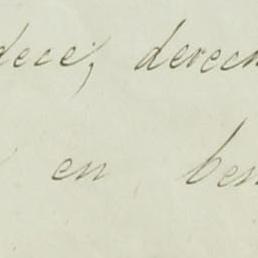 dece, derech
en ben